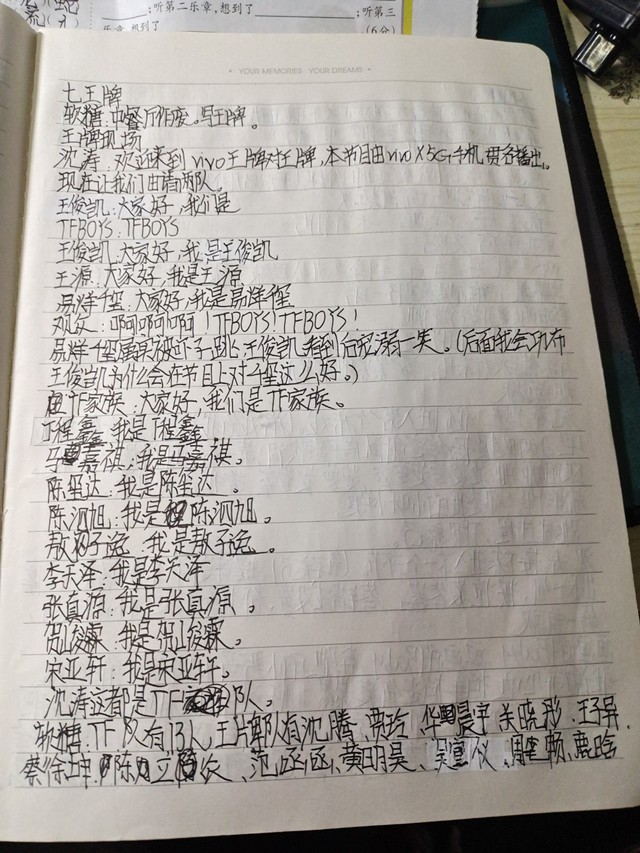 ；听第二乐章，想到了
；听第三
乐章，想到了
(6分)
YOUR MEMORIES · YOUR DREAMS
七王牌
软糖：中餐厅作废。写王牌。
王牌现场
沈涛：欢迎来到vivo王牌对王牌，本节目由vivo X5G手机贯名播出。
现在让我们由请两队。
王俊凯：大家好，我们是
TFBOYS：TFBOYS
王俊凯：大家好，我是王俊凯
王源：大家好，我是王源
易烊千玺：大家好，我是易烊千玺
观众：啊啊啊！TFBOYS！TFBOYS！
易烊千玺属实被吓了一跳，王俊凯看到后宠溺一笑。（后面我会功布
王俊凯为什么会在节目上对千玺这么好。）
TF家族：大家好，我们是TF家族。
丁程鑫：我是丁程鑫
马嘉祺：我是马嘉祺。
陈玺达：我是陈玺达。
陈泗旭：我是陈泗旭。
敖子逸：我是敖子逸。
李天泽：我是李天泽
张真源：我是张真源。
贺峻霖：我是贺峻霖。
宋亚轩：我是宋亚轩。
沈涛这都是TF队。
软糖：TF队有13人，王牌队有沈腾、贾玲、华晨宇、关晓彤、王子异、
蔡徐坤、陈立农、范丞丞、黄明昊、吴宣仪、周笔畅、鹿晗